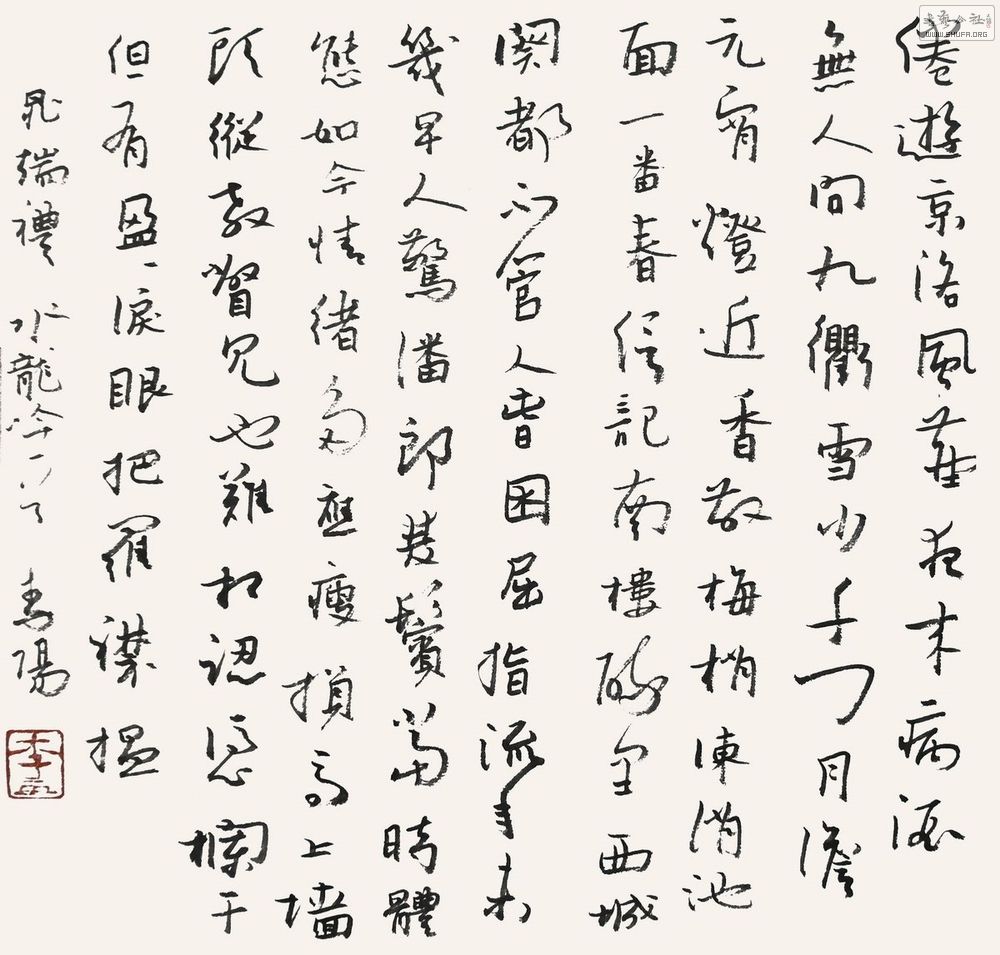 倦遊京洛風塵夜來病酒
無人問九衢雪少千門月澹
元宵燈近香散梅梢凍消池
面一番春信記南樓醉里西城
闋都不管人春困屈指流年未
幾早人驚潘郎雙鬢當時體
態如今情緒多應瘦損馬上墻
頭縱教瞥見也難相認憑欄干
但有盈〻淚眼把羅襟揾
晁端禮 水龍吟一首
WWW.SHUFA.ORG